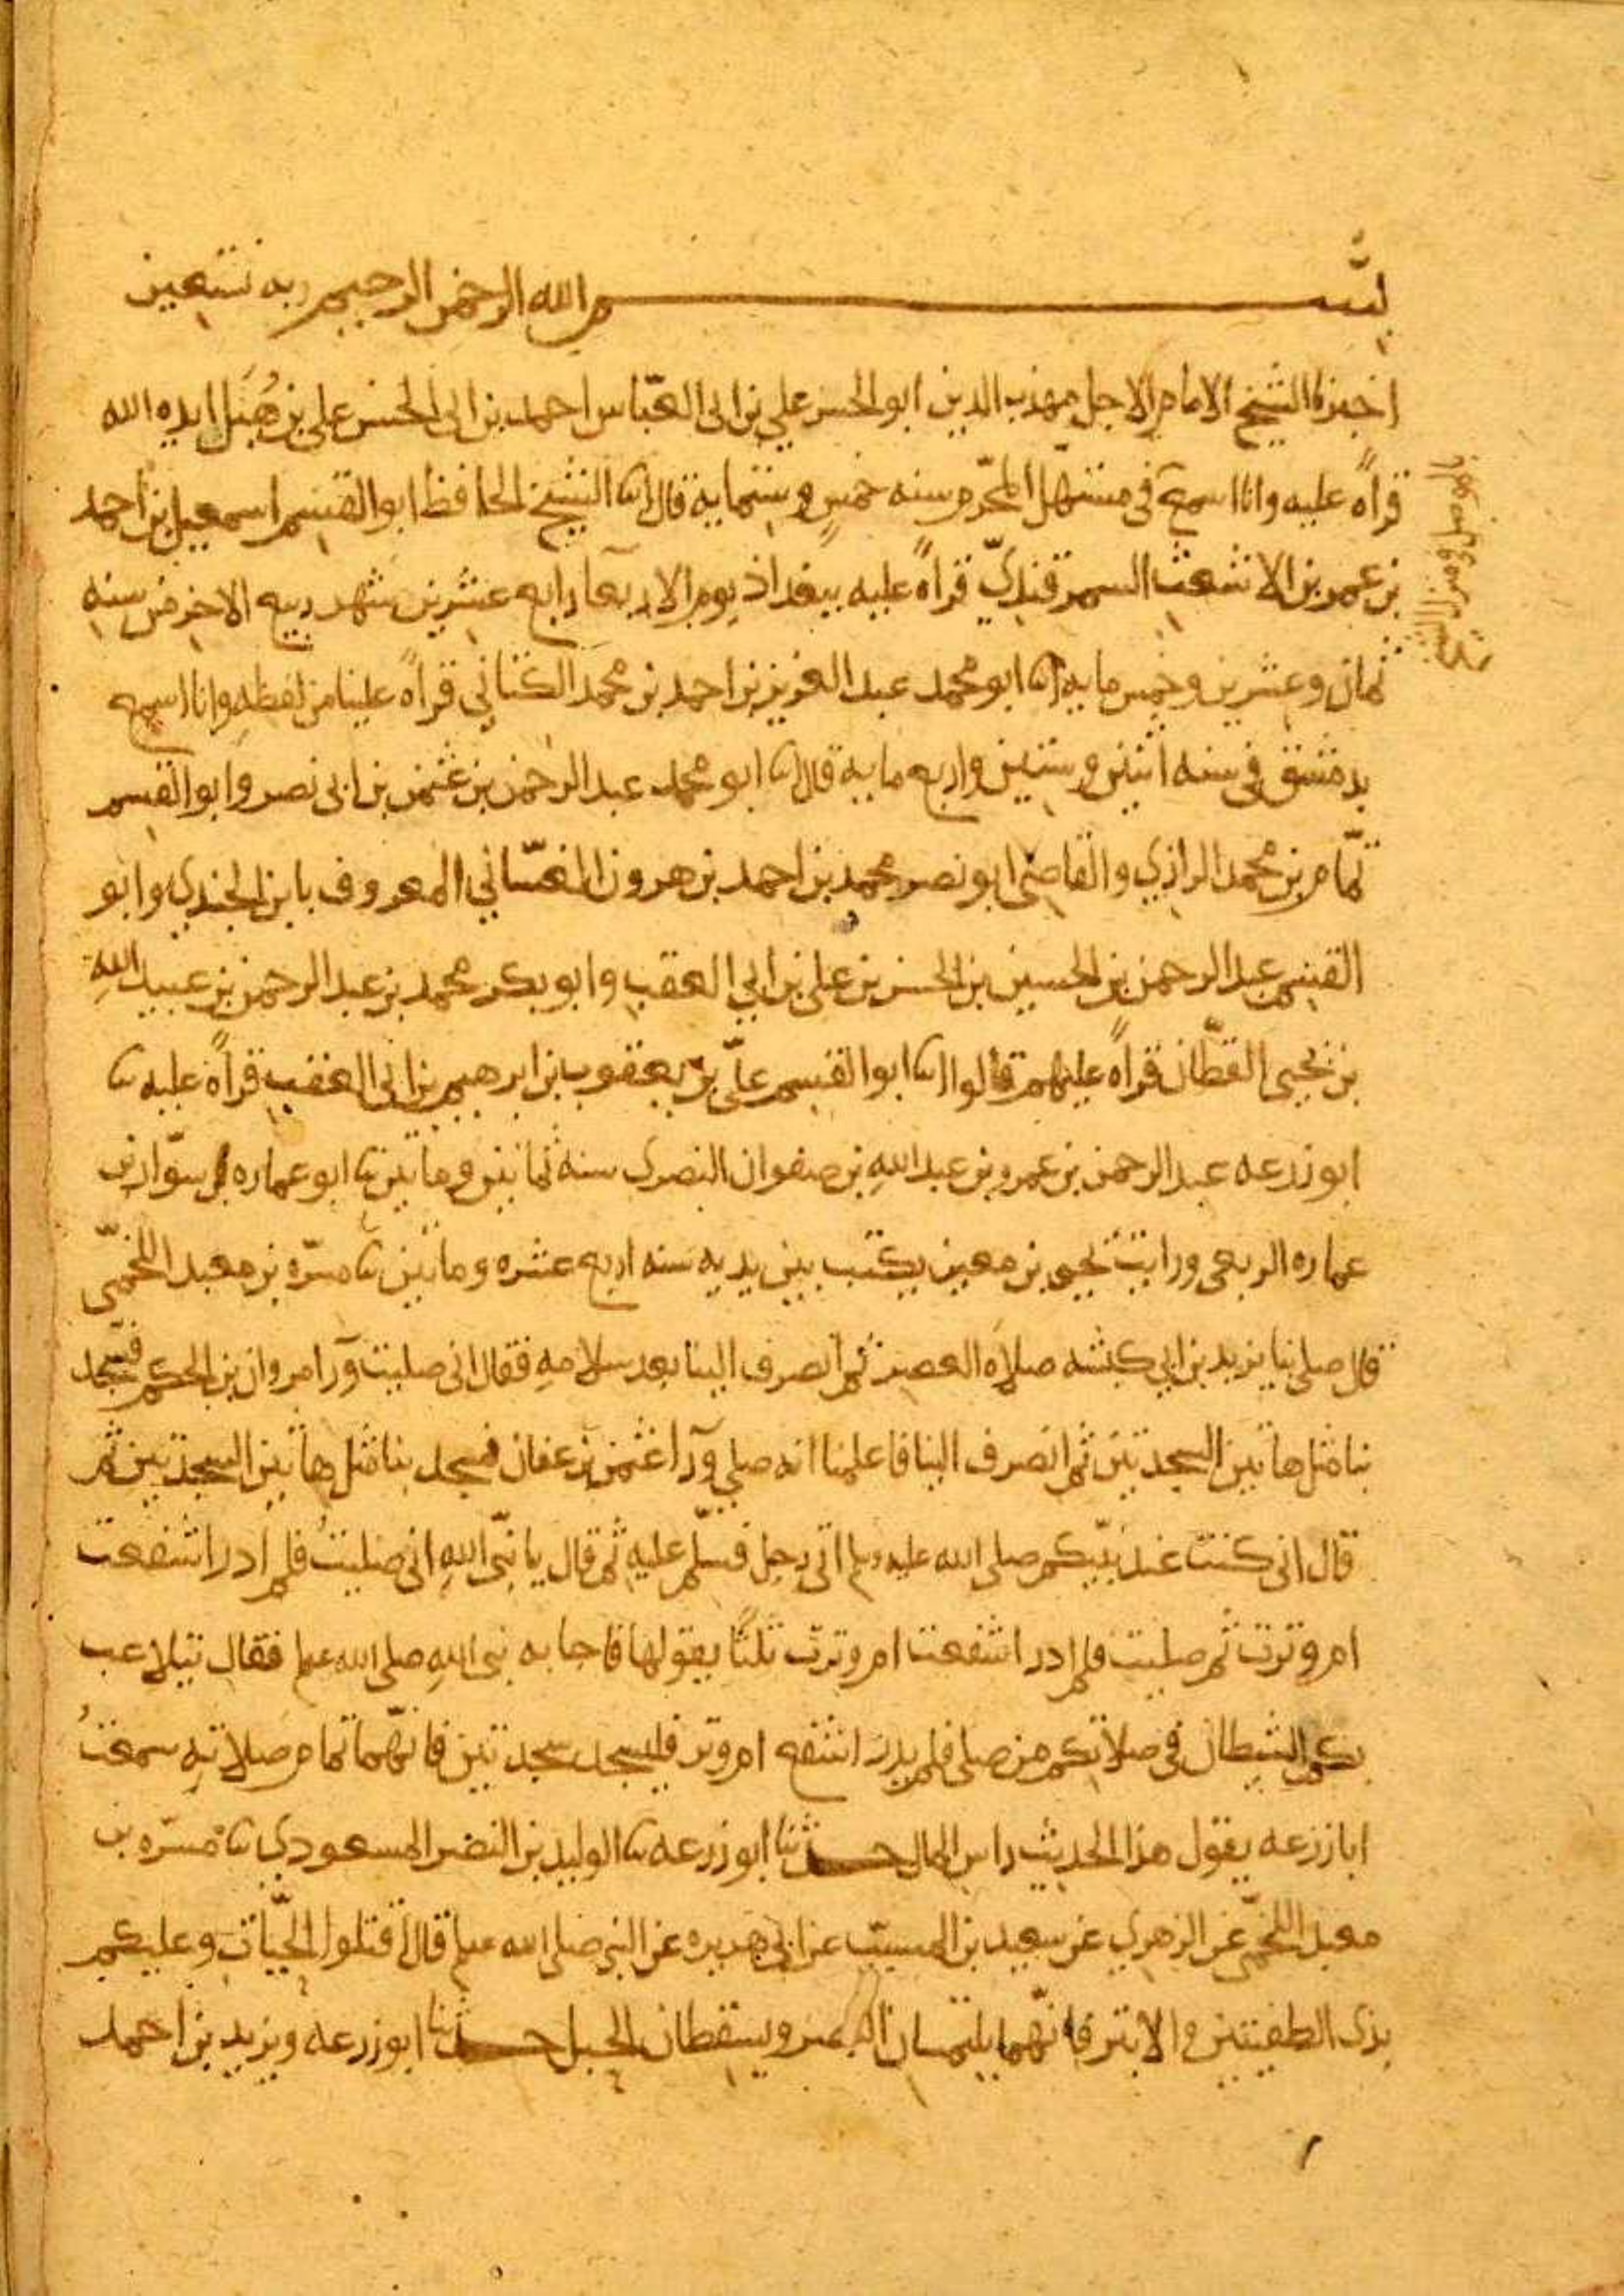 بسم الله الرحمن الرحيم وبه نستعين
اخبرنا الشيخ الامام الاجل مهذب الدين ابو الحسن علي بن ابي العباس احمد بن ابي الحسن علي بن هُبَل ايده الله
قراةً عليه وانا اسمع في مستهل المحرّم سنه خمسٍ وستمايه قال انا الشيخ الحافظ ابو القسم اسمعيل بن احمد
بن عمر بن الاشعث السمرقنديّ قراةً عليه ببغداذ يوم الاربعآ رابع عشرين شهر ربيع الاخر من سنه
ثمان وعشرين وخمس مايه انا ابو محمد عبد العزيز بن احمد بن محمد الكتاني قراةً علينا من لفظه وانا اسمع
بدمشق في سنه اثنين وستين واربع مايه قال انا ابو محمد عبد الرحمن بن عثمن بن ابي نصر وابو القسم
تمّام بن محمد الرازي والقاضي ابو نصر محمد بن احمد بن هرون الغسّاني المعروف بابن الجندي وابو
القسم عبد الرحمن بن الحسين بن الحسن بن علي بن ابي العقب وابو بكر محمد بن عبد الرحمن بن عبيد اللهِ
بن يحيى القطّان قراةً عليهم قالوا انا ابو القسم عليّ بن يعقوب بن ابرهيم بن ابي العقب قراةً عليه ثنا
ابو زرعه عبد الرحمن بن عمرو بن عبد اللهِ بن صفوان النصري سنه ثمانين ومايتين ثنا ابو عماره سوّار بن
عماره الربعي ورايت يحيى بن معين يكتب بين يديه سنه اربع عشره ومايتين ثنا مسرّه بن معبد اللخميّ
قال صلى بنا يزيد بن ابي كبشه صلاه العصر ثم انصرف الينا بعد سلامهِ فقال اني صليت ورآ مروان بن الحكم فسجد
بنا مثل هاتين السجدتين ثم انصرف الينا فاعلمنا انه صلى ورآ عثمن بن عفان فسجد بنا مثل هاتين السجدتين ثم
قال اني كنت عند نبيّكم صلى الله عليه وسلم اتى رجل فسلّم عليه ثم قال يا نبيّ اللهِ اني صليتُ فلم ادر اشفعت
ام وترت ثم صليت فلم ادر اشفعت ام وترت ثلثًا يقولها فاجابه نبي اللهِ صلى الله علم فقال تتلاعب
بكم الشيطان في صلاتكم من صلى فلم يدر اشفع ام وتر فليسجد سجدتين فانّهما تمام صلاتهِ سمعتُ
ابا زرعه يقول هذا الحديث راس المال حدثنا ابو زرعه ثنا الوليد بن النضر المسعودي ثنا مسرّه بن
معبد اللخميّ عن الزهري عن سعيد بن المسيّب عن ابي هريره عن النبي صلى الله علم قال اقتلوا الحيّات وعليكم
بذي الطفيتين والابتر فانّهما يلتمسان البصر ويسقطان الحبل حدثنا ابو زرعه ويزيد بن احمد